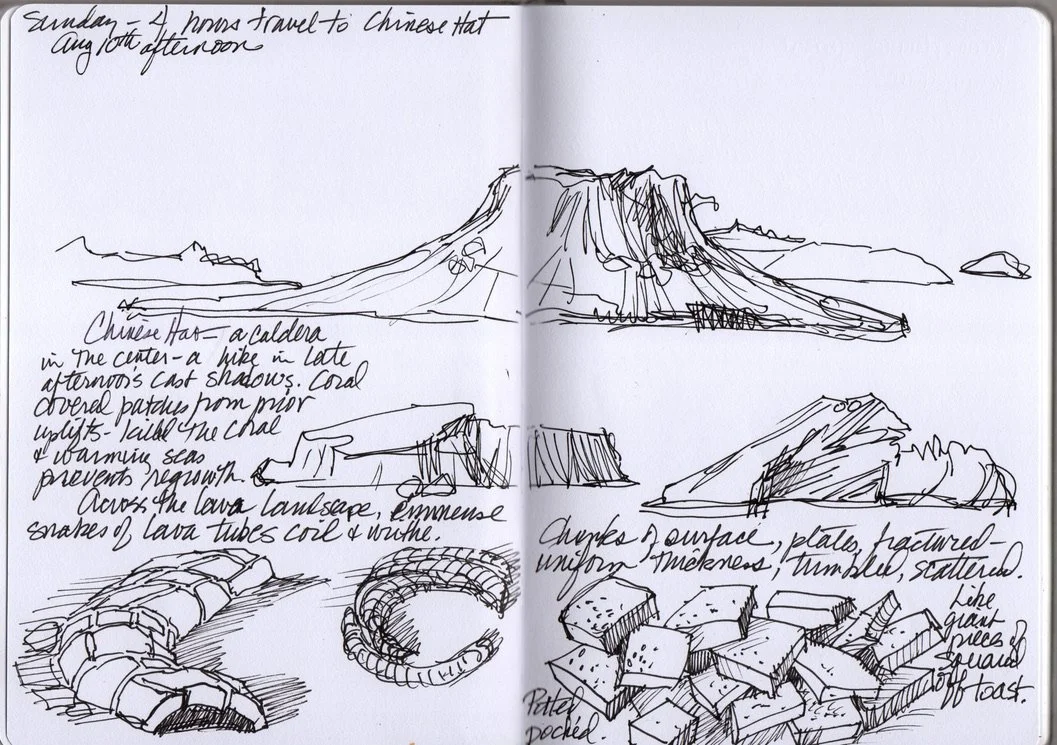 Sunday - 4 hours travel to Chinese Hat
Aug 10th afternoon
Chinese Hat - a caldera
in the center - a hike in late
afternoon's cast shadows. Coral
covered patches from prior
uplifts - killed the coral
& warming seas
prevents regrowth.
Across the lava landscape, immense
snakes of lava tubes coil & writhe.
Chunks of surface, plates, fractured -
uniform thickness, tumbled, scattered.
Like
giant
pieces of
squared
off toast.
Pitted
pocked.